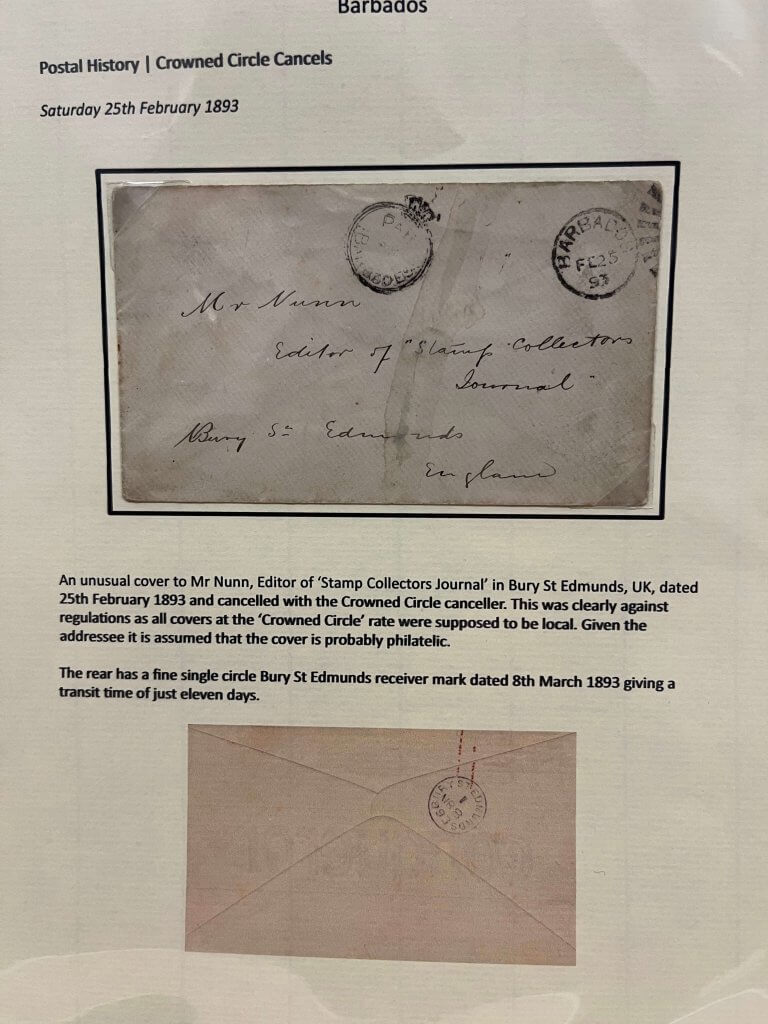 Barbados
Postal History | Crowned Circle Cancels
Saturday 25th February 1893
PAI
BARBADOES
BARBADOS
FE 25
93
Mr Nunn
Editor of "Stamp Collectors
Journal"
Bury St Edmunds
England
An unusual cover to Mr Nunn, Editor of ‘Stamp Collectors Journal’ in Bury St Edmunds, UK, dated
25th February 1893 and cancelled with the Crowned Circle canceller. This was clearly against
regulations as all covers at the ‘Crowned Circle’ rate were supposed to be local. Given the
addressee it is assumed that the cover is probably philatelic.
The rear has a fine single circle Bury St Edmunds receiver mark dated 8th March 1893 giving a
transit time of just eleven days.
BURY ST EDMUNDS
MR 8
93